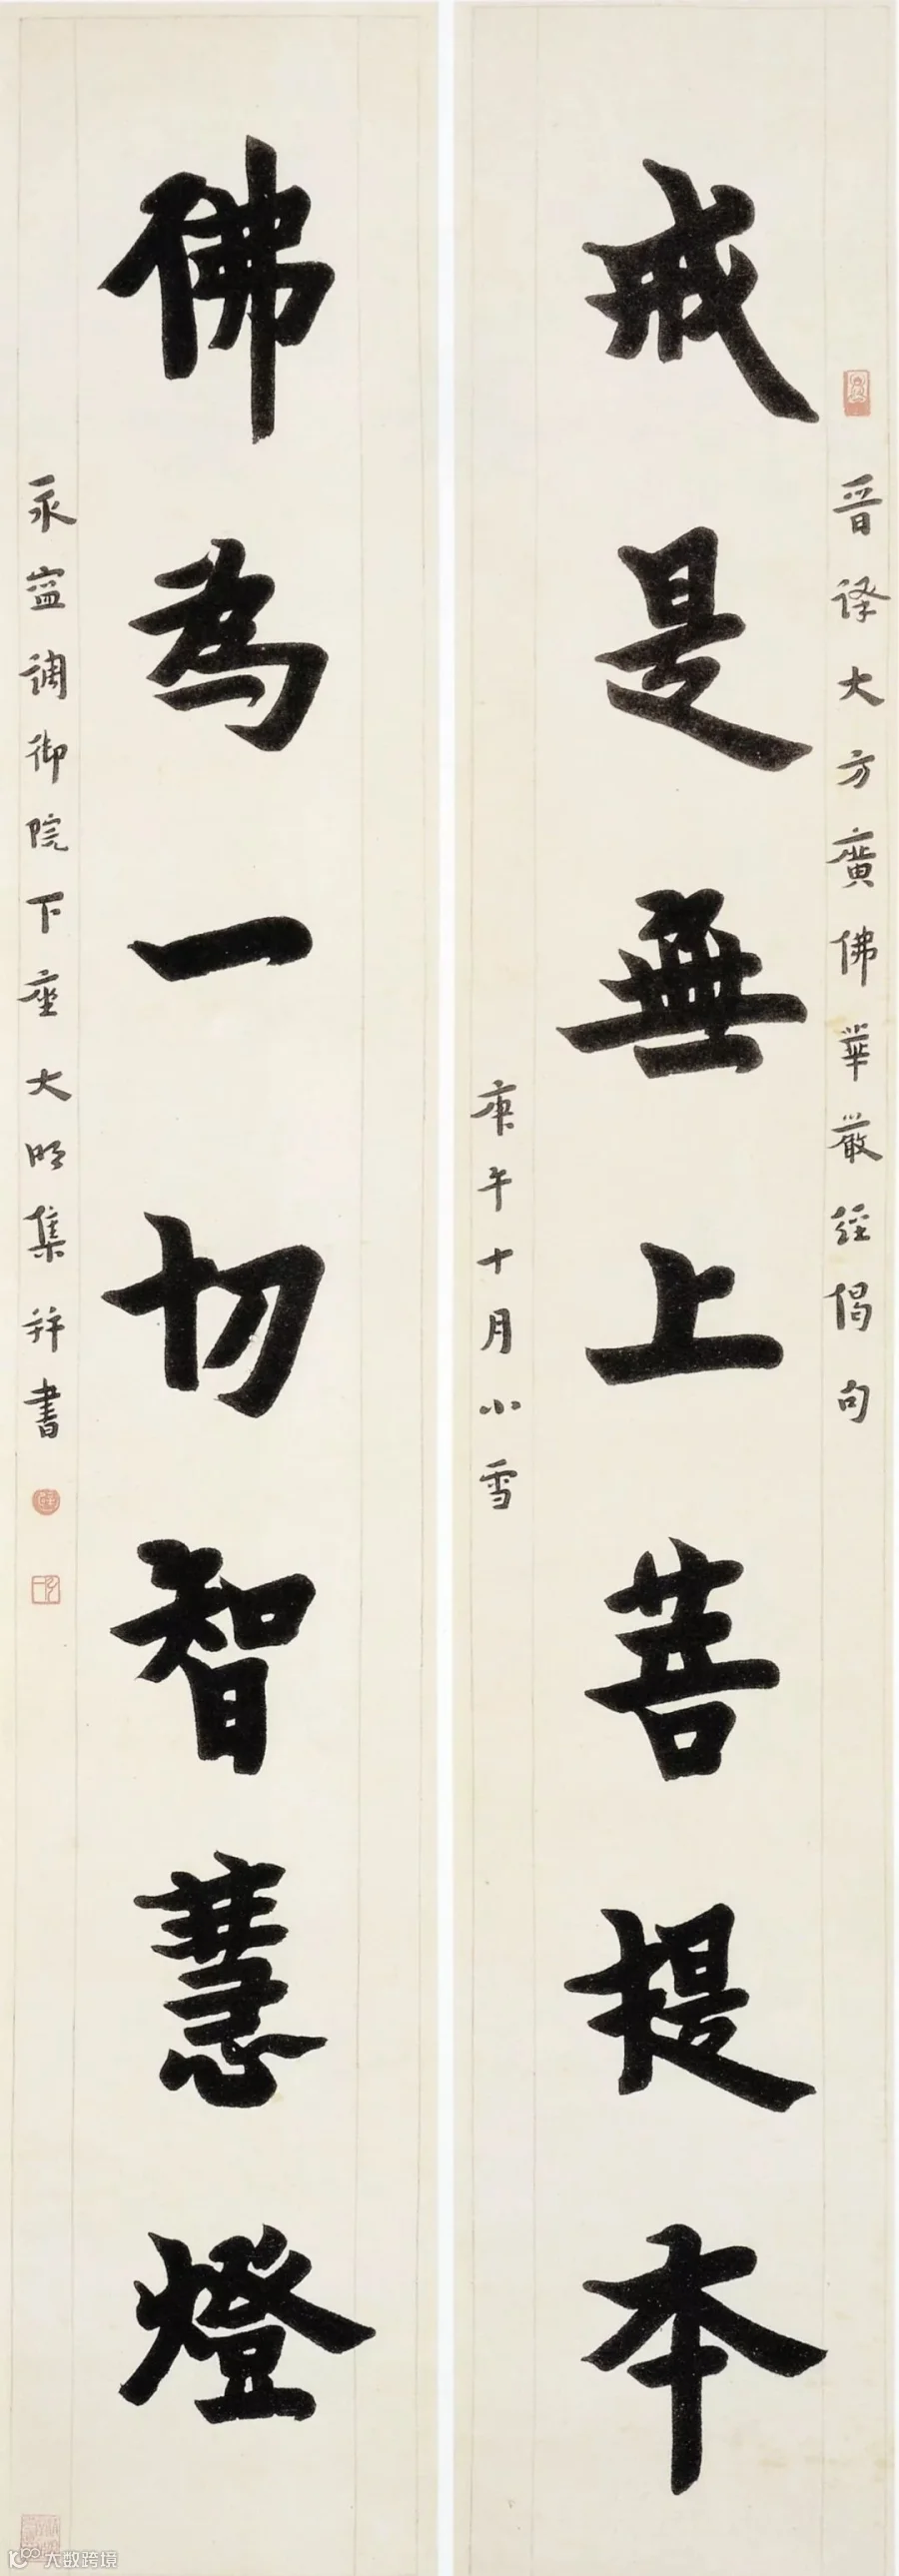 晋譯大方廣佛華嚴經偈句
戒是無上菩提本
庚午十月小雪
佛為一切智慧燈
永寍調御院下座大明集并書
大数跨境